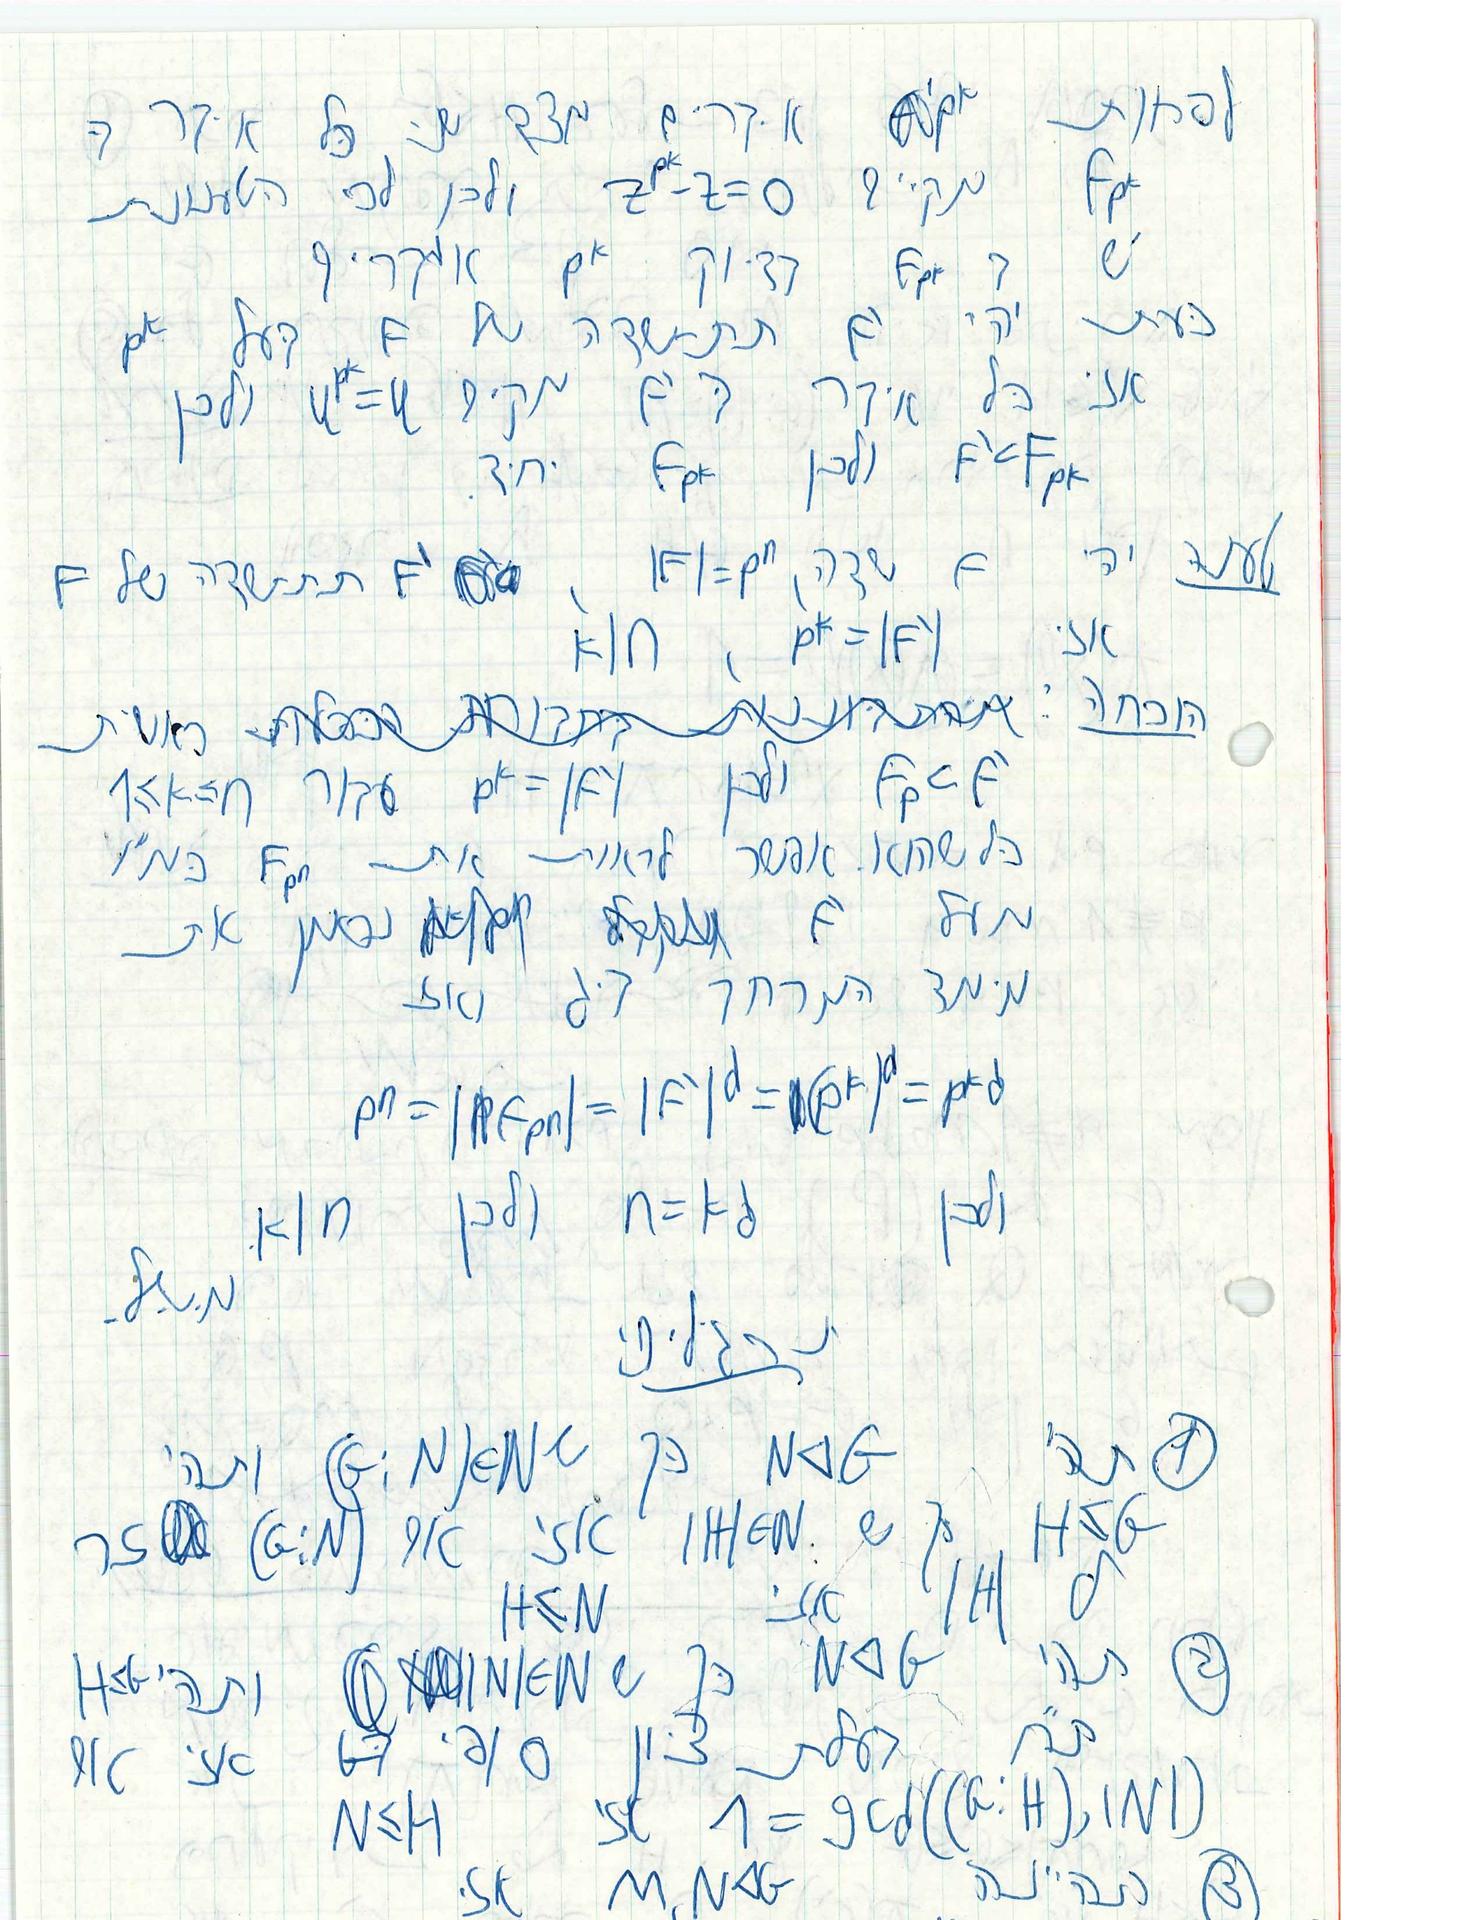 לפחות p^k איברים מצד שני כל איבר ב
F_{p^k} מקיים z^{p^k}-z=0 ולכן לפי הטענות
יש ב F_{p^k} בדיוק p^k איברים
כעת יהי F' תת-שדה של F בעל p^k
אזי כל איבר ב F' מקיים u^{p^k}=u ולכן
F'<F_{p^k} ולכן F_{p^k} יחיד.
טענה יהי F שדה, |F|=p^n, F' תת-שדה של F
אזי p^k=|F'|, k|n
הוכחה: ראשית
F_p<F' ולכן p^k=|F'| עבור 1≤k≤n
כלשהוא. אפשר לראות את F_{p^n} כמ"ו
מעל F' נסמן את
מימד המרחב ב-d ואז
p^n=|F_{p^n}|=|F'|^d=(p^k)^d=p^{kd}
ולכן n=kd ולכן k|n.
מ.ש.ל.
תרגילים
① תהי N⊲G כך ש (G:N)∈N ותהי
H≤G כך ש |H|∈N אזי אם (G:N) זר
ל |H| אזי H≤N
② תהי N⊲G כך ש |N|∈N ותהי H≤G
ת"ח בעלת ציון סופי ב-G אזי אם
1=gcd((G:H),|N|) אזי N≤H
③ תהיינה M,N⊲G אזי